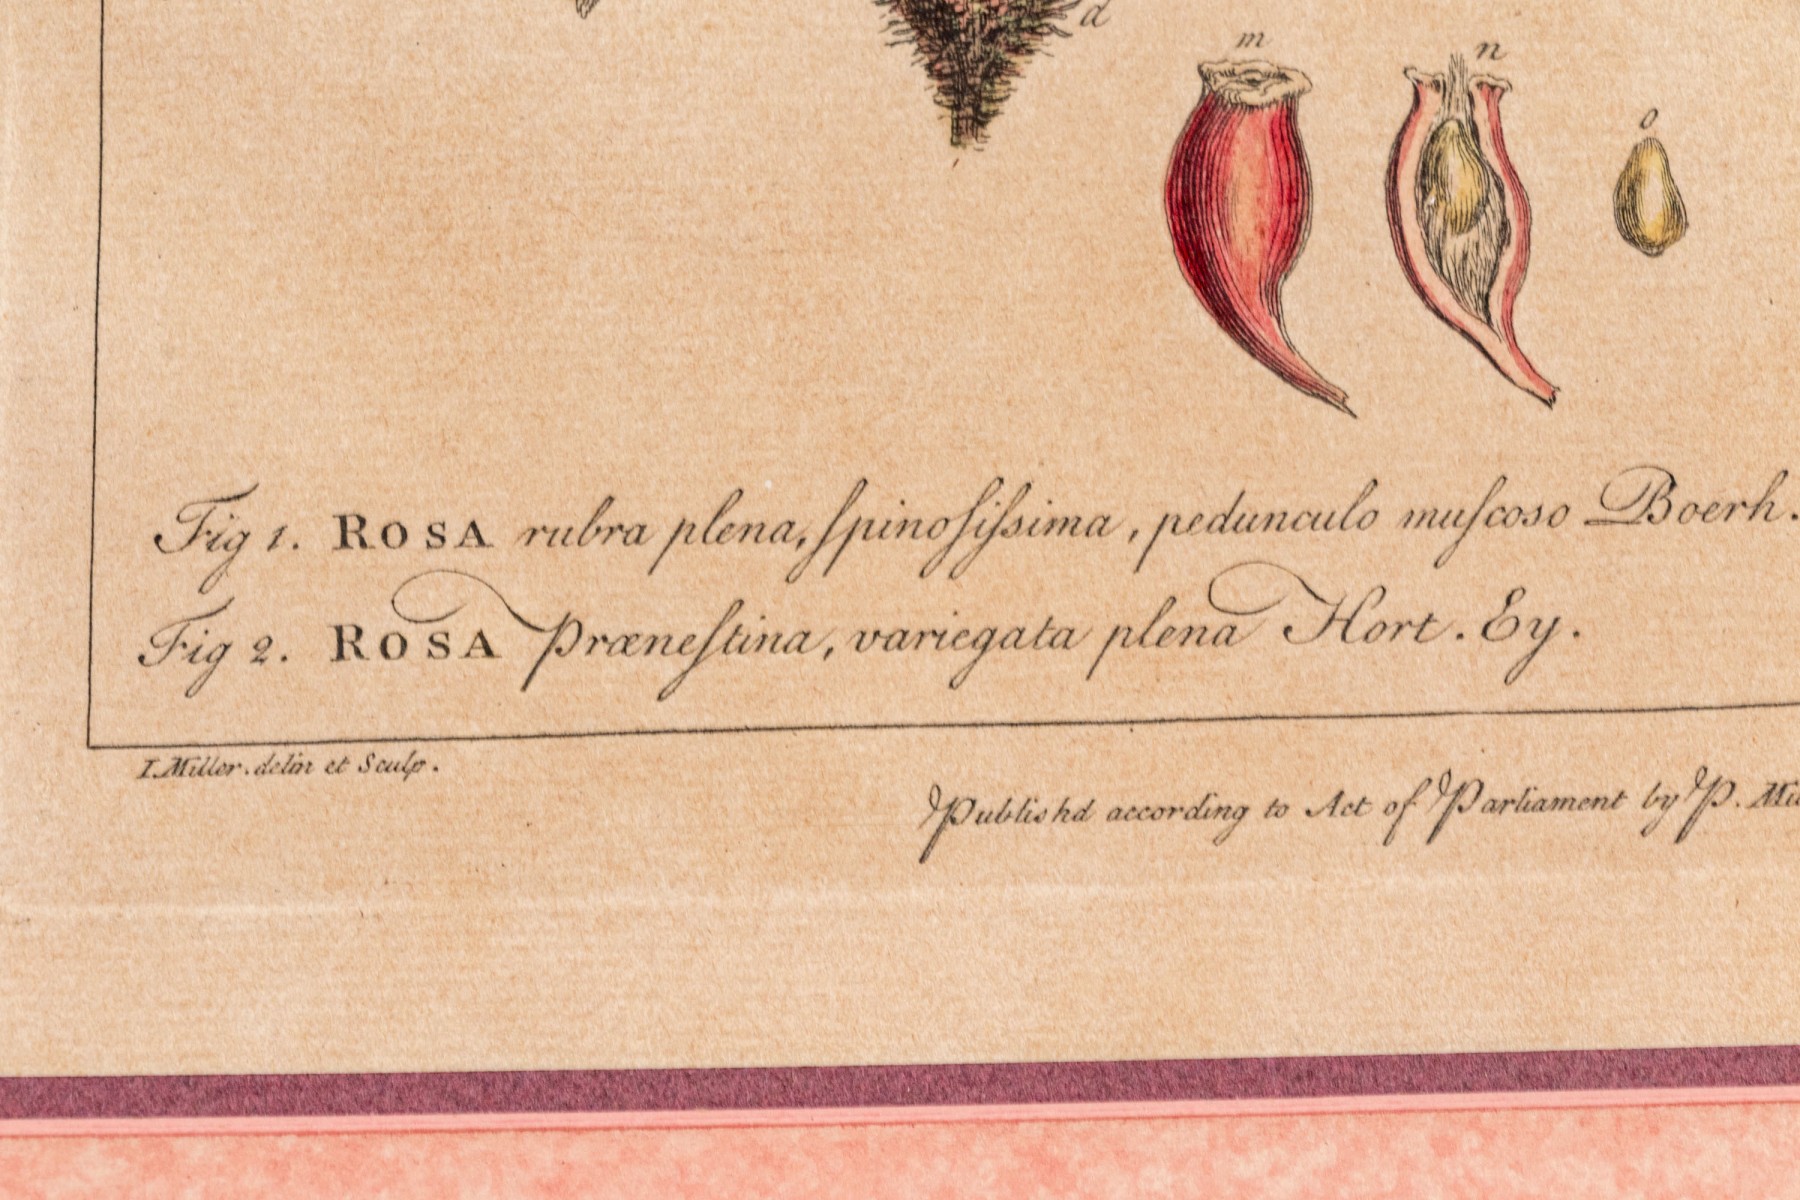 d
m
n
o
Fig 1. ROSA rubra plena, ſpinoſiſsima, pedunculo muſcoso Boerh.
Fig 2. ROSA Præneſtina, variegata plena Hort. Ey.
I. Miller. delin et Sculp.
Publishd according to Act of Parliament by P.